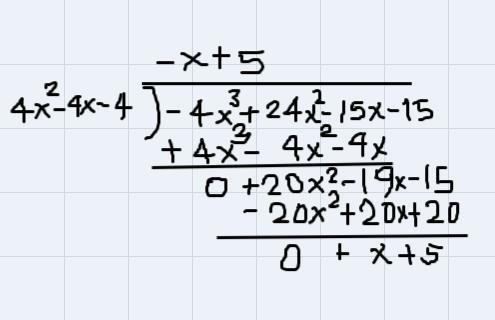 -x+5
4x²-4x-4 ) -4x³+24x²-15x-15
+4x³- 4x²-4x
0 +20x²-19x-15
-20x²+20x+20
0 + x+5